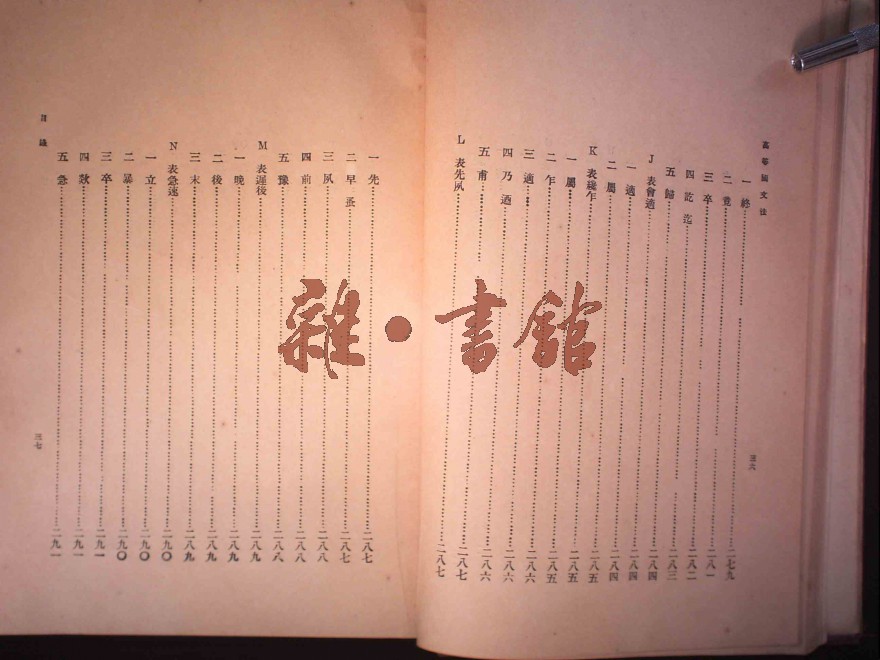 高等國文法
一 終 二七九
二 竟 二八一
三 卒 二八一
四 訖 迄 二八二
五 歸 二八三
J 表會適 二八四
一 適 二八四
二 屬 二八四
K 表纔乍 二八五
一 屬 二八五
二 乍 二八五
三 適 二八六
四 乃 迺 二八六
五 甫 二八六
L 表先夙 二八七
三六
目錄
一 先 二八七
二 早 蚤 二八七
三 夙 二八八
四 前 二八八
五 豫 二八八
M 表遲後 二八九
一 晚 二八九
二 後 二八九
三 末 二八九
N 表急速 二九〇
一 立 二九〇
二 暴 二九〇
三 卒 二九一
四 欻 二九一
五 急 二九一
三七
雜·書館